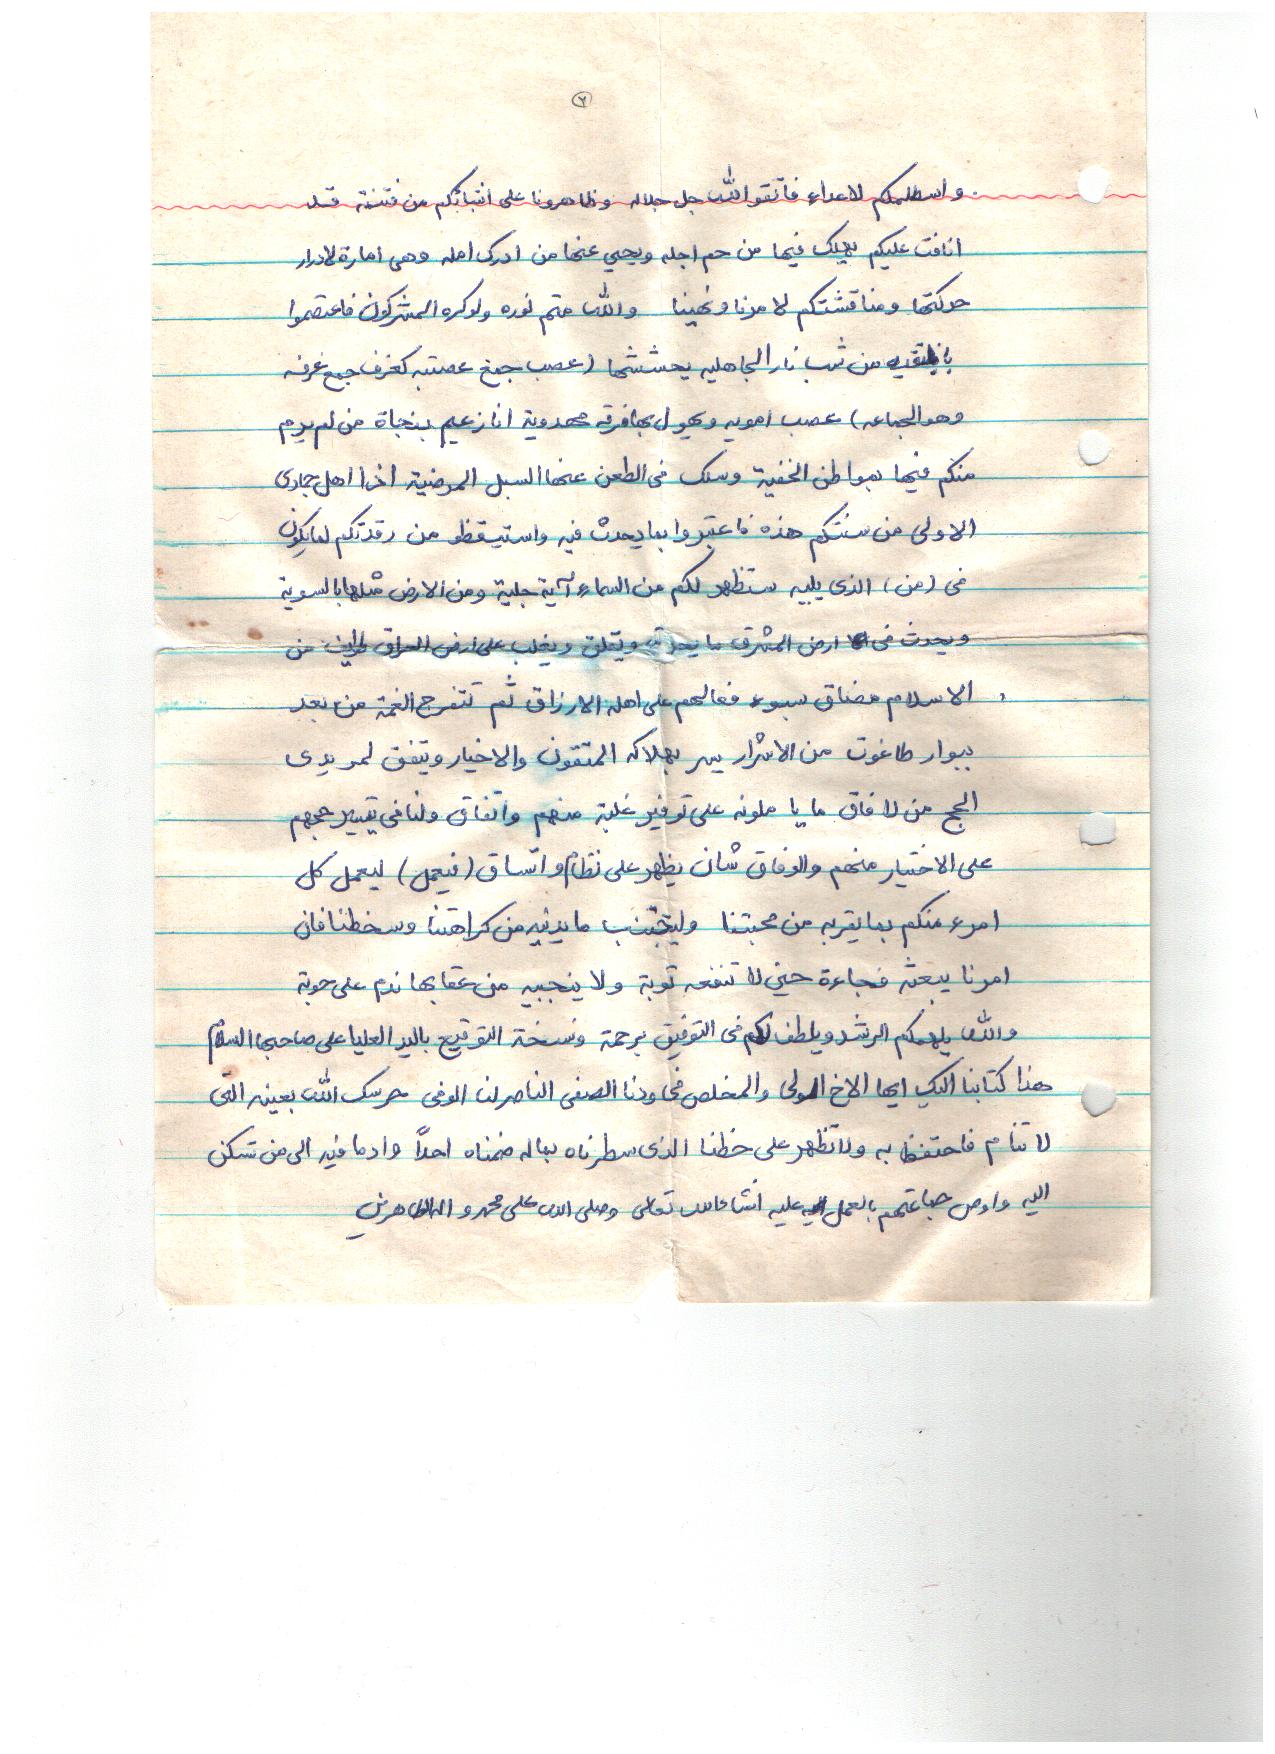 ٢
واصطلمكم لاعداء فاتقو الله جل جلاله وظاهرونا على انتباتكم من فتنة قد
انافت عليكم يهلك فيها من حم اجله ويحيي عنها من ادرك امله وهي امارة لادرار
حركتها ومناقشتكم لامرنا ونهينا والله متم نوره ولوكره المشركون فاعتصموا
بالتقيه من شب نار الجاهليه يحششها (عصب جمع عصبته كغرف جمع غرفه
وهو الجماعه) عصب امويه ويهول بها فرقه مهدوية انا زعيم بنجاة من لم يرم
منكم فيها بمواطن الخفية وسلك في الطعن عنها السبل المرضية اذا اهل جمادى
الاولى من سنتكم هذه فاعتبروا بما يحدث فيه واستيقظو من رقدتكم لما يكون
في (من) الذى يليه ستظهر لكم من السماء آية جلية ومن الارض مثلها بالسوية
ويحدث في ارض المشرق ما يحزن ويقلق ويغلب على ارض العراق طوايف من
الاسلام مضاق سوء فعالهم على اهله الارزاق ثم تنفرج الغمة من بعد
ببوار طاغوت من الاشرار يسر بهلاكه المتقون والاخيار ويتفق لمريدى
الحج من لافاق ما يا ملونه على توفير غلبة منهم واتفاق ولنا في تيسير حجهم
على الاختيار منهم والوفاق شان يظهر على نظام واتساق (فيعمل) ليعمل كل
امرء منكم بما يقربه من محبتنا وليجتنب ما يدنيه من كراهتنا وسخطنا فان
امرنا يبعثه فجاءة حين لا تنفعه توبة ولا ينجيه من عقابها ندم على حوبة
والله يلهمكم الرشد ويلطف لكم في التوفيق برحمة ونسخة التوقيع باليد العليا على صاحبها السلام
هذا كتابنا اليك ايها الاخ الولى والمخلص في ودنا الصفى الناصر لنا الوفى حرسك الله بعينه التى
لا تنام فاحتفظ به ولا تظهر على خطنا الذى سطرناه بماله ضمناه احداً وادما فيه الى من تسكن
اليه واوص جماعتهم بالعمل عليه انشاءالله تعالى وصلى الله على محمد واله الطاهرين